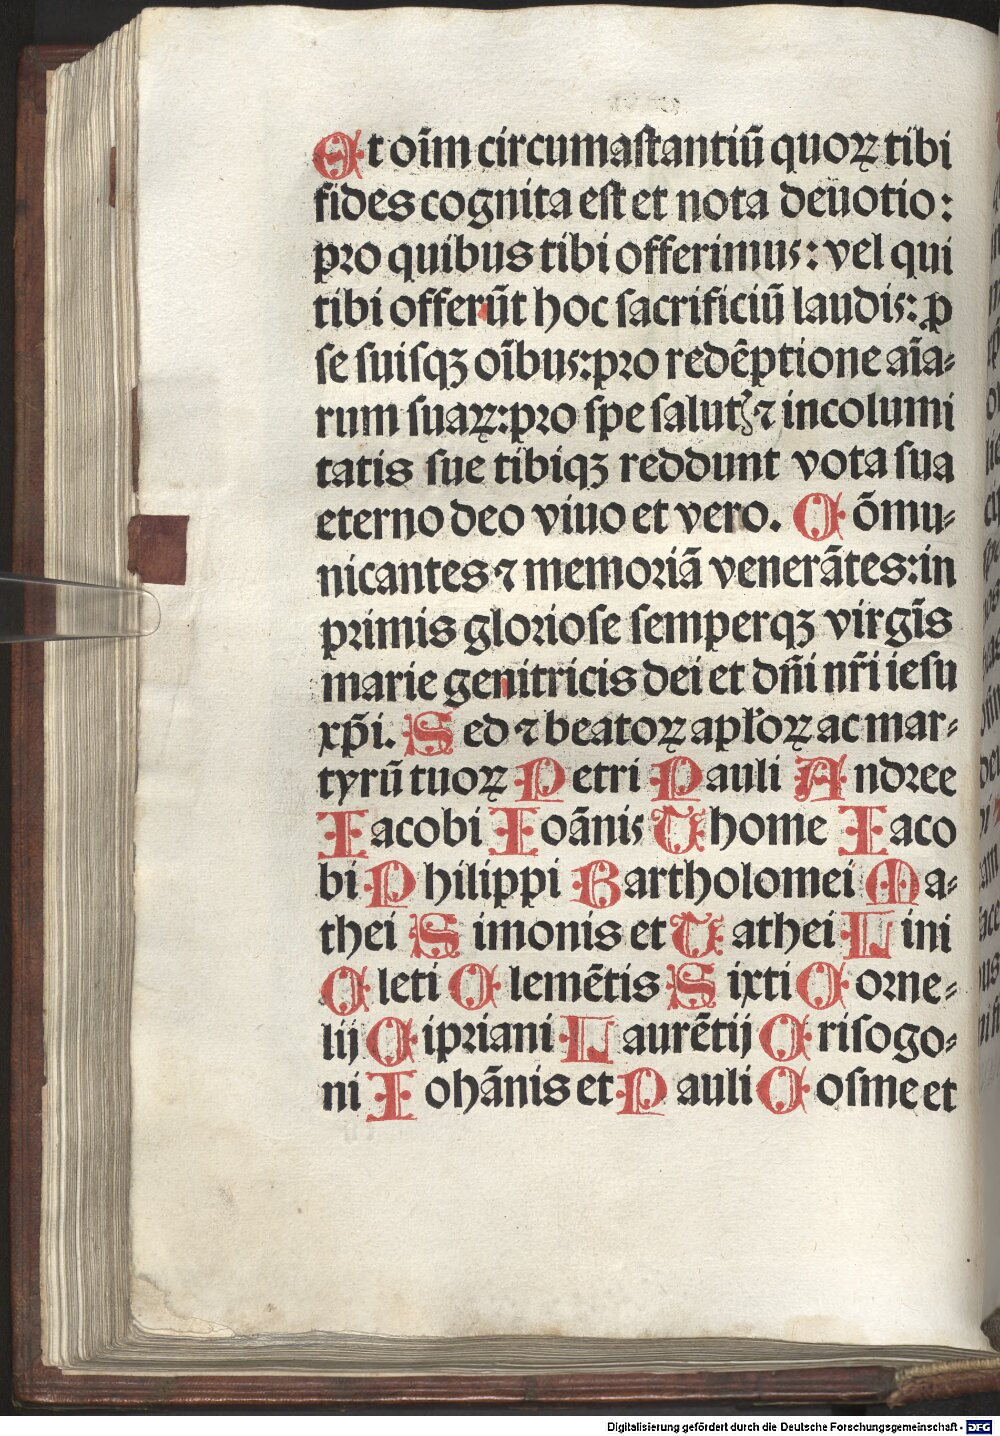 Et oīm circumaſtantiū quoꝝ tibi
fides cognita eſt et nota deuotio:
pro quibus tibi offerimuꝰ: vel qui
tibi offerūt hoc ſacrificiū laudiꝭ: ꝑ
ſe ſuiſqꝫ oībuꝰ: pro redēptione aīa⸗
rum ſuaꝝ: pro ſpe ſalutꝭ ⁊ incolumi
tatis ſue tibiqꝫ reddunt vota ſua
eterno deo viuo et vero. Cōmu⸗
nicantes ⁊ memoriā venerātes: in
primis glorioſe ſemperqꝫ virgīs
marie genitricis dei et dn̄i nr̄i ieſu
xp̄i. Sed ⁊ beatoꝝ apl̄oꝝ ac mar⸗
tyrū tuoꝝ Petri Pauli Andree
Iacobi Ioānis Thome Iaco
bi Philippi Bartholomei Ma⸗
thei Simonis et Tathei Lini
Cleti Clemētis Sixti Corne⸗
lij Cipriani Laurētij Criſogo⸗
ni Iohānis et Pauli Coſme et
Digitalisierung gefördert durch die Deutsche Forschungsgemeinschaft - DFG